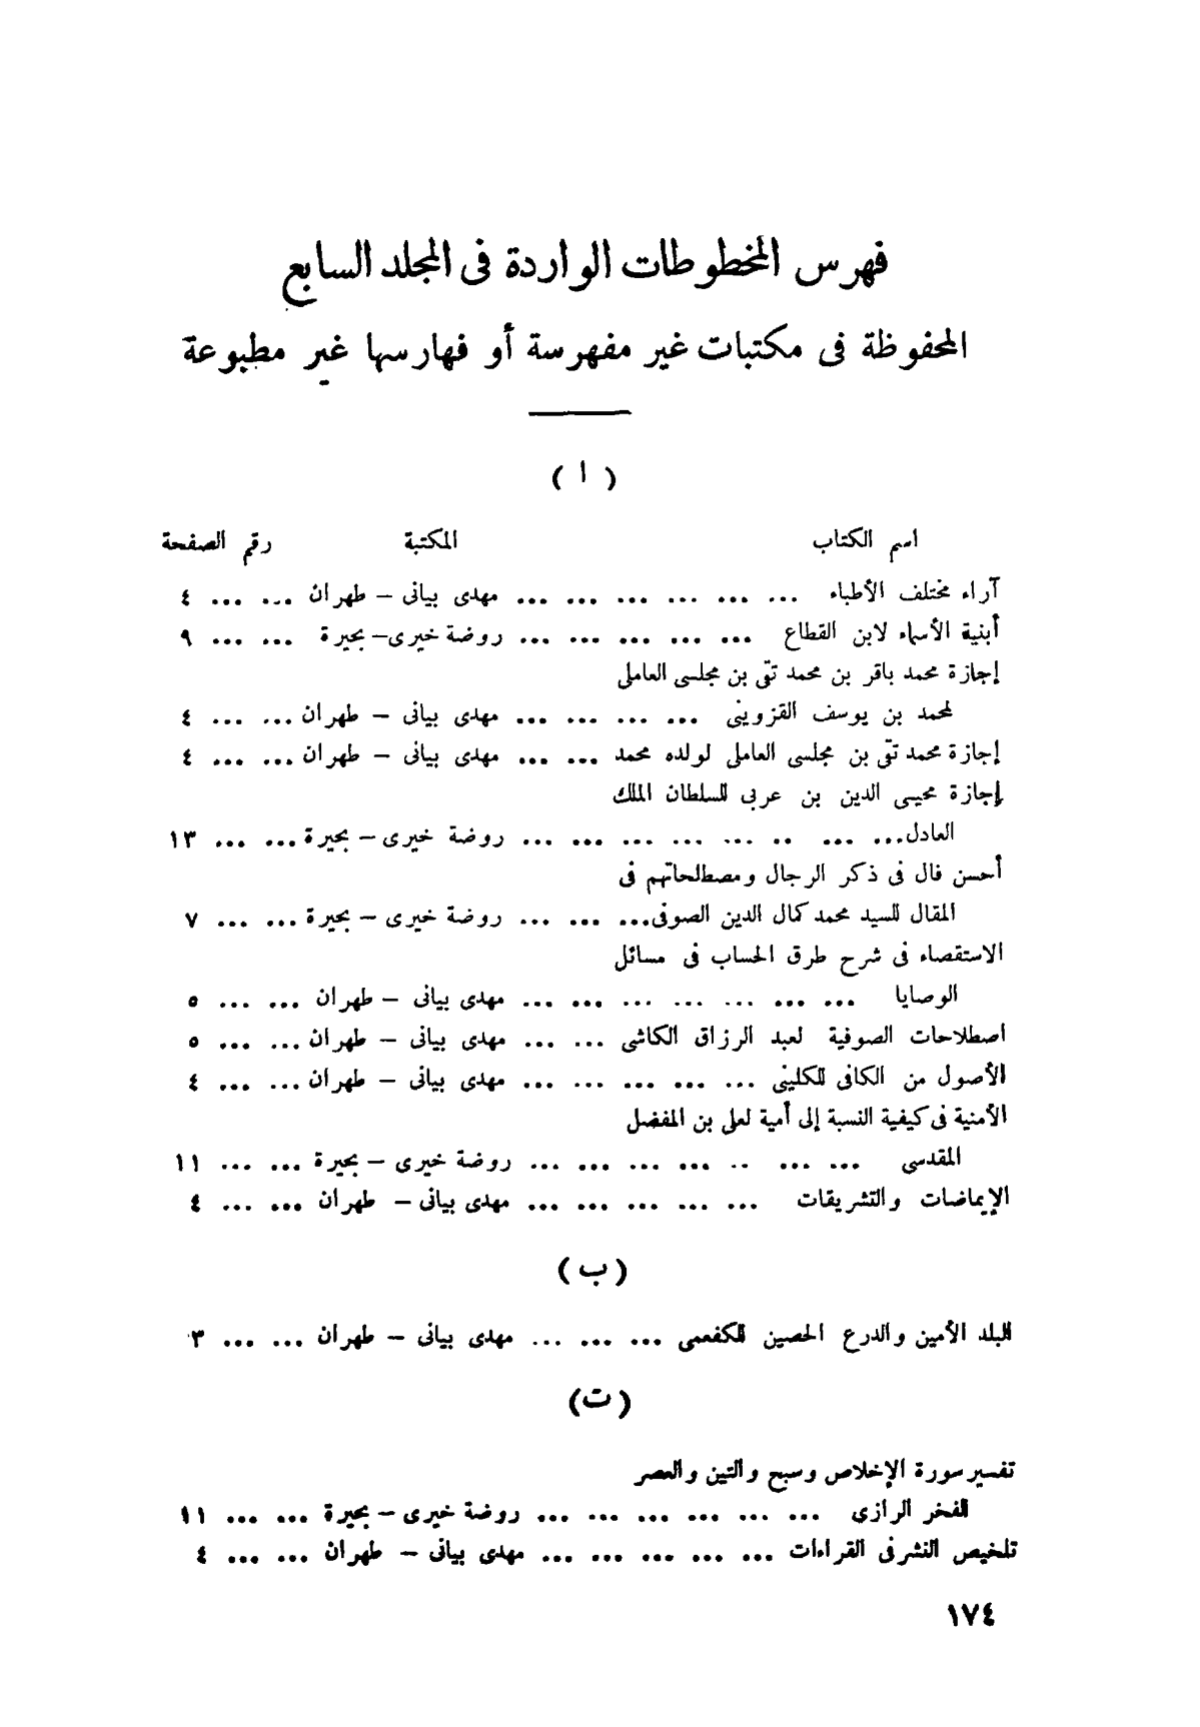 فهرس المخطوطات الواردة فى المجلد السابع
المحفوظة فى مكتبات غير مفهرسة أو فهارسها غير مطبوعة
( ا )
اسم الكتاب المكتبة رقم الصفحة
آراء مختلف الأطباء ... ... ... ... ... ... مهدى بيانى – طهران ... ... ٤
أبنية الأسماء لابن القطاع ... ... ... ... ... روضة خيرى – بحيرة ... ... ٩
إجازة محمد باقر بن محمد تقى بن مجلسى العاملى
لمحمد بن يوسف القزوينى ... ... ... ... مهدى بيانى – طهران ... ... ٤
إجازة محمد تقى بن مجلسى العاملى لولده محمد ... ... مهدى بيانى – طهران ... ... ٤
إجازة محيى الدين بن عربى للسلطان الملك
العادل... ... .. ... ... ... ... ... روضة خيرى – بحيرة ... ... ١٣
أحسن فال فى ذكر الرجال ومصطلحاتهم فى
المقال للسيد محمد كمال الدين الصوفى... ... ... روضة خيرى – بحيرة ... ... ٧
الاستقصاء فى شرح طرق الحساب فى مسائل
الوصايا ... ... ... ... ... ... ... مهدى بيانى – طهران ... ... ٥
اصطلاحات الصوفية لعبد الرزاق الكاشى ... ... مهدى بيانى – طهران ... ... ٥
الأصول من الكافى للكلينى ... ... ... ... ... مهدى بيانى – طهران ... ... ٤
الأمنية فى كيفية النسبة إلى أمية لعلى بن المفضل
المقدسى ... ... .. ... ... ... ... روضة خيرى – بحيرة ... ... ١١
الإيماضات والتشريقات ... ... ... ... ... مهدى بيانى – طهران ... ... ٤
( ب )
البلد الأمين والدرع الحصين للكفعمى ... ... ... مهدى بيانى – طهران ... ... ٣
( ت )
تفسير سورة الإخلاص وسبح والتين والعصر
للفخر الرازى ... ... ... ... ... ... روضة خيرى – بحيرة ... ... ١١
تلخيص النشر فى القراءات ... ... ... ... ... مهدى بيانى – طهران ... ... ٤
١٧٤